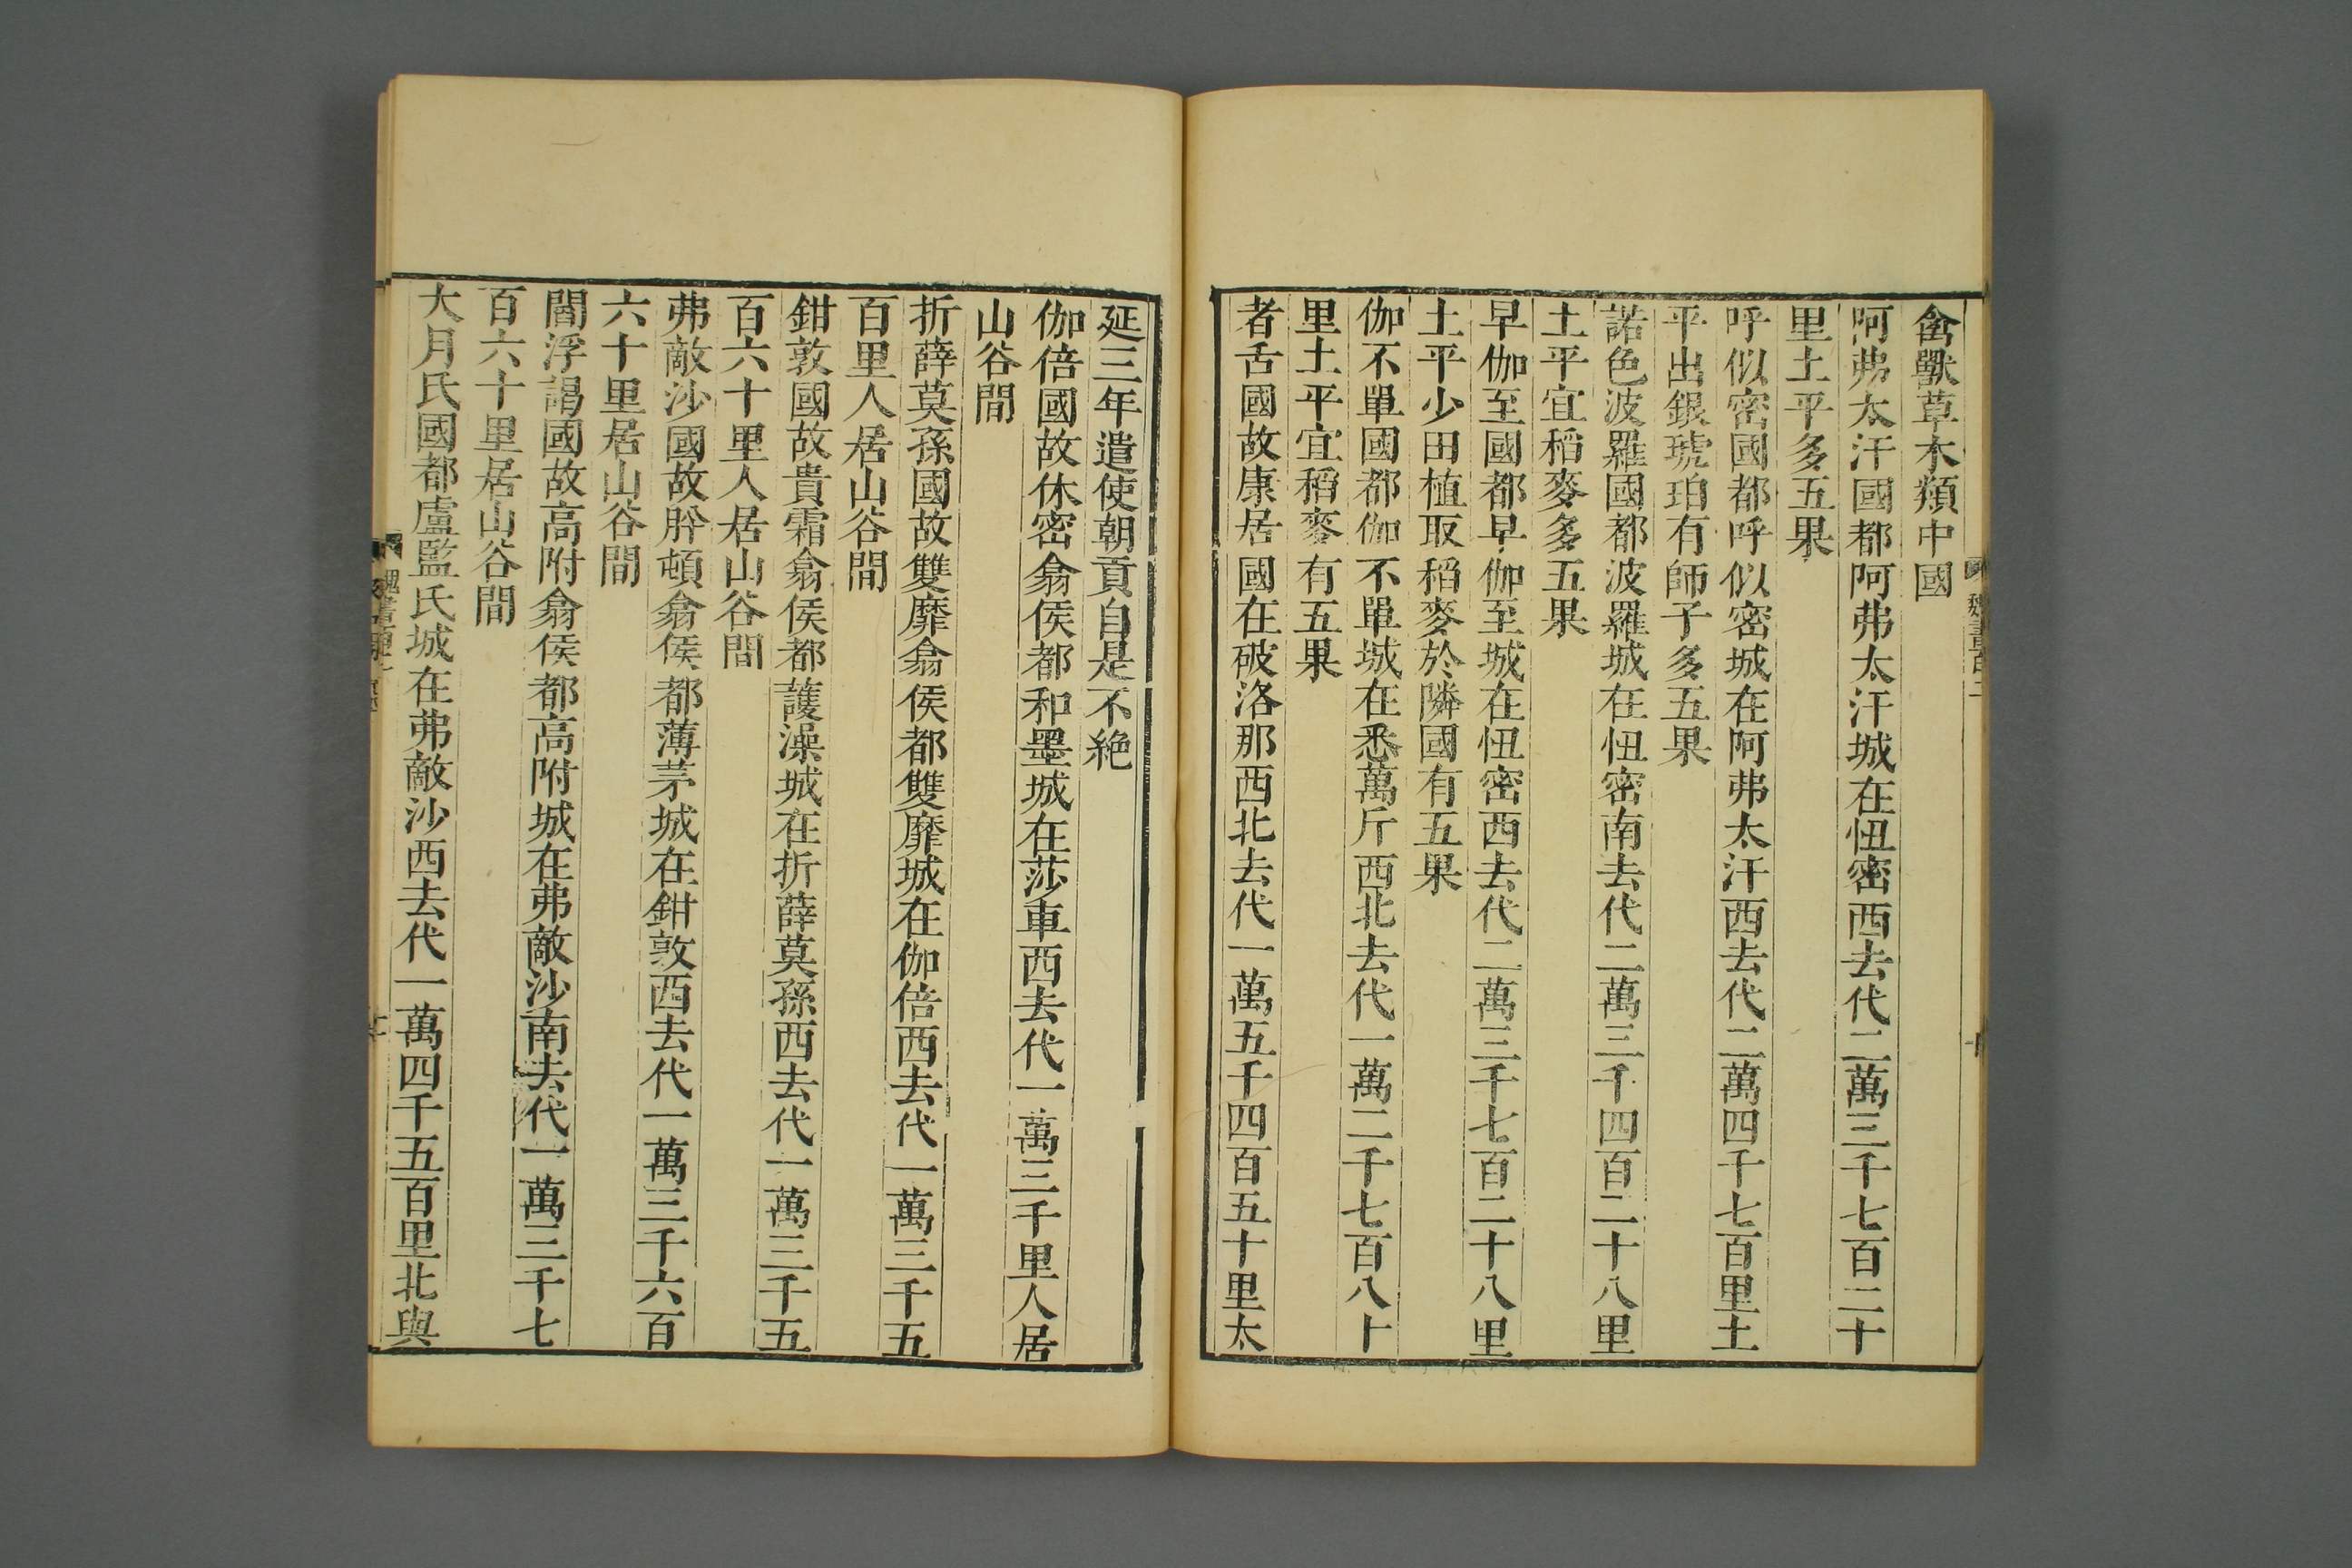 禽獸草木類中國
阿弗太汗國都阿弗太汗城在忸密西去代二萬三千七百二十
里土平多五果
呼似密國都呼似密城在阿弗太汗西去代二萬四千七百里土
平出銀琥珀有師子多五果
諾色波羅國都波羅城在忸密南去代二萬三千四百二十八里
土平宜稻麥多五果
早伽至國都早伽至城在忸密西去代二萬三千七百二十八里
土平少田植取稻麥於隣國有五果
伽不單國都伽不單城在悉萬斤西北去代一萬二千七百八十
里土平宜稻麥有五果
者舌國故康居國在破洛那西北去代一萬五千四百五十里太
延三年遣使朝貢自是不絶
伽倍國故休密翕侯都和墨城在莎車西去代一萬三千里人居
山谷間
折薛莫孫國故雙靡翕侯都雙靡城在伽倍西去代一萬三千五
百里人居山谷間
鉗敦國故貴霜翕侯都護澡城在折薛莫孫西去代一萬三千五
百六十里人居山谷間
弗敵沙國故肸頓翕侯都薄茅城在鉗敦西去代一萬三千六百
六十里居山谷間
閻浮謁國故高附翕侯都高附城在弗敵沙南去代一萬三千七
百六十里居山谷間
大月氏國都盧監氏城在弗敵沙西去代一萬四千五百里北與